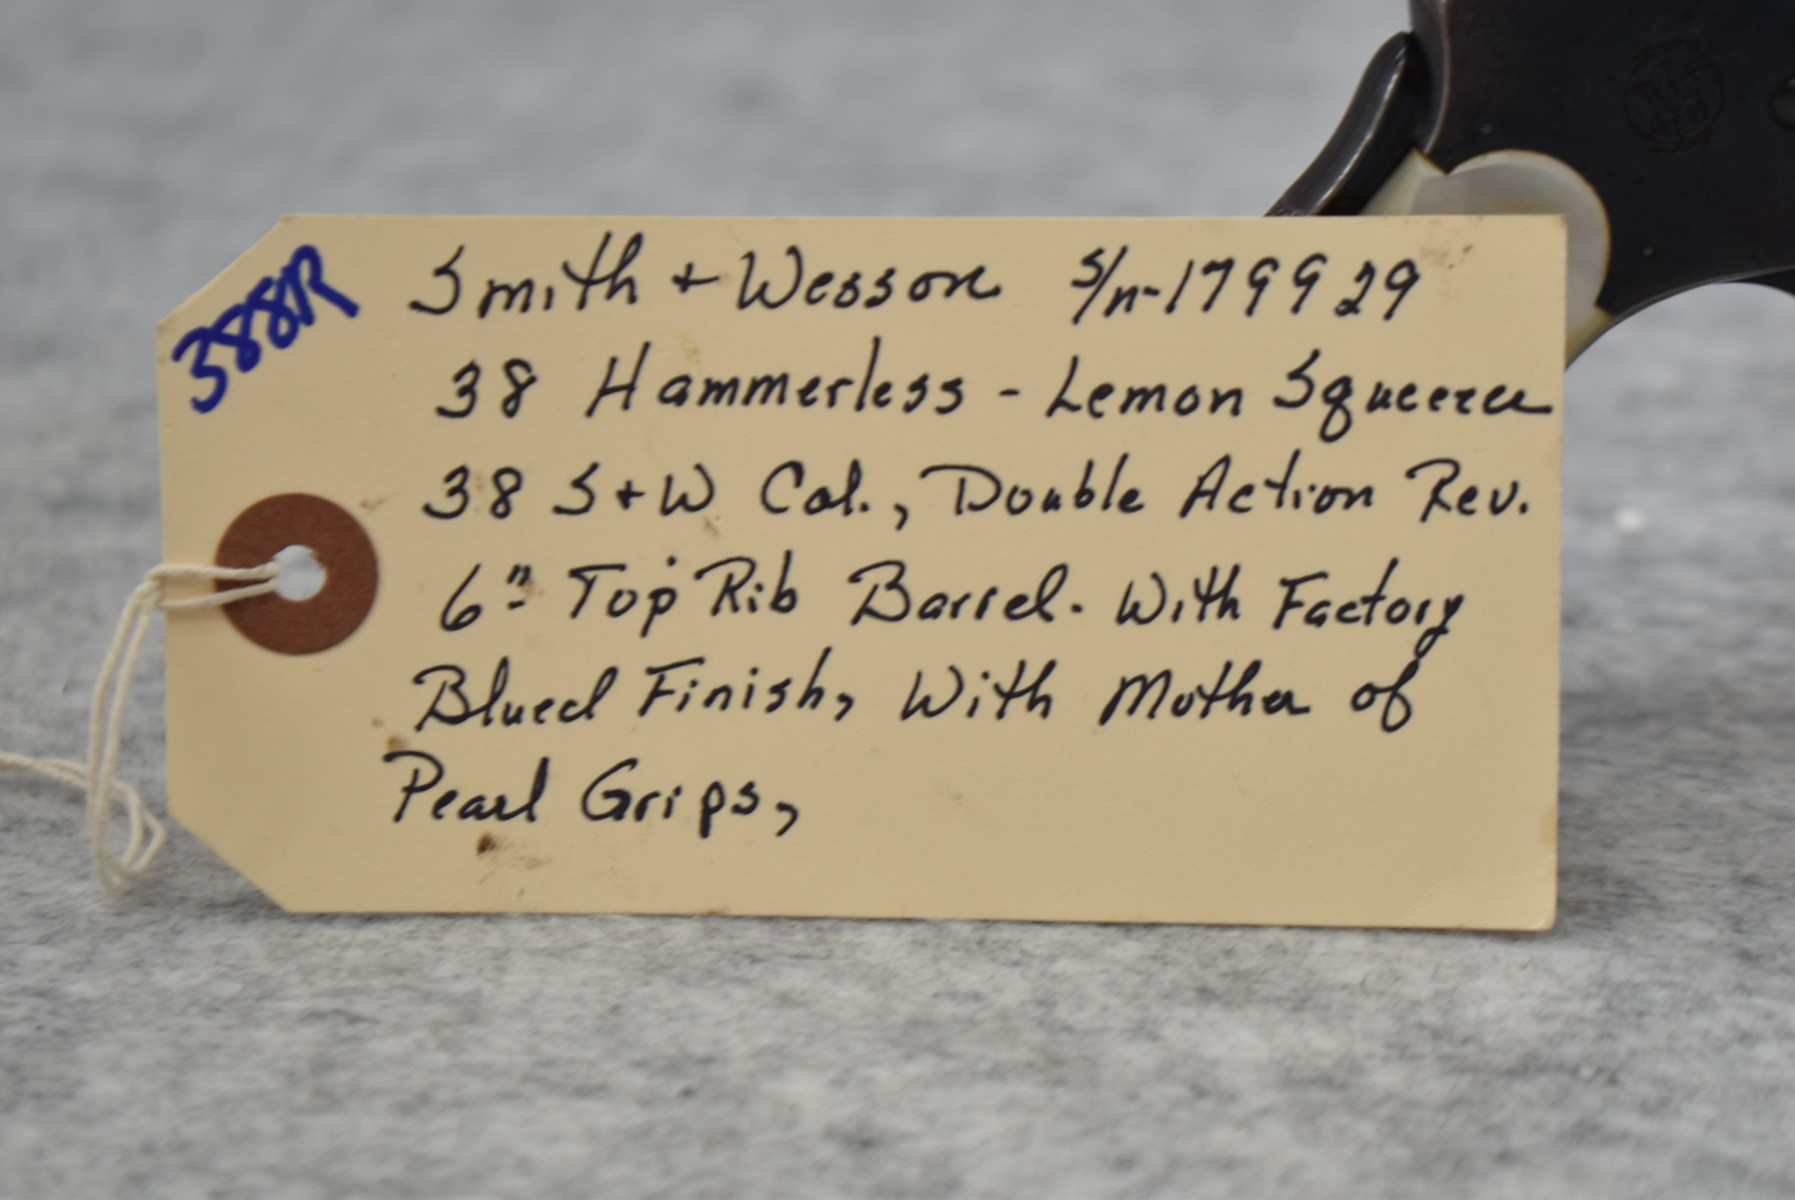 388R
Smith + Wesson S/n-179929
38 Hammerless - Lemon Squeezer
38 S+W Cal., Double Action Rev.
6"- Top Rib Barrel. With Factory
Blued Finish, With Mother of
Pearl Grips,